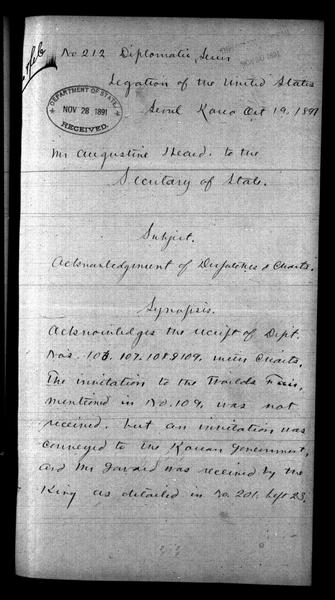 No 212 Diplomatic Series
Legation of the United States
DEPARTMENT OF STATE
NOV 28 1891
RECEIVED.
Seoul Korea Oct 19. 1891
Mr Augustine Heard. to the
Secretary of State.
Subject.
Acknowledgment of Despatches & Charts.
Synopsis.
Acknowledges the receipt of Dept.
Nos. 106. 107. 108 & 109, with Charts.
The invitation to the Worlds Fair,
mentioned in No. 109, was not
received. but an invitation was
conveyed to the Korean Government,
and Mr was received by the
King as detailed in No. 201, Sept 23.